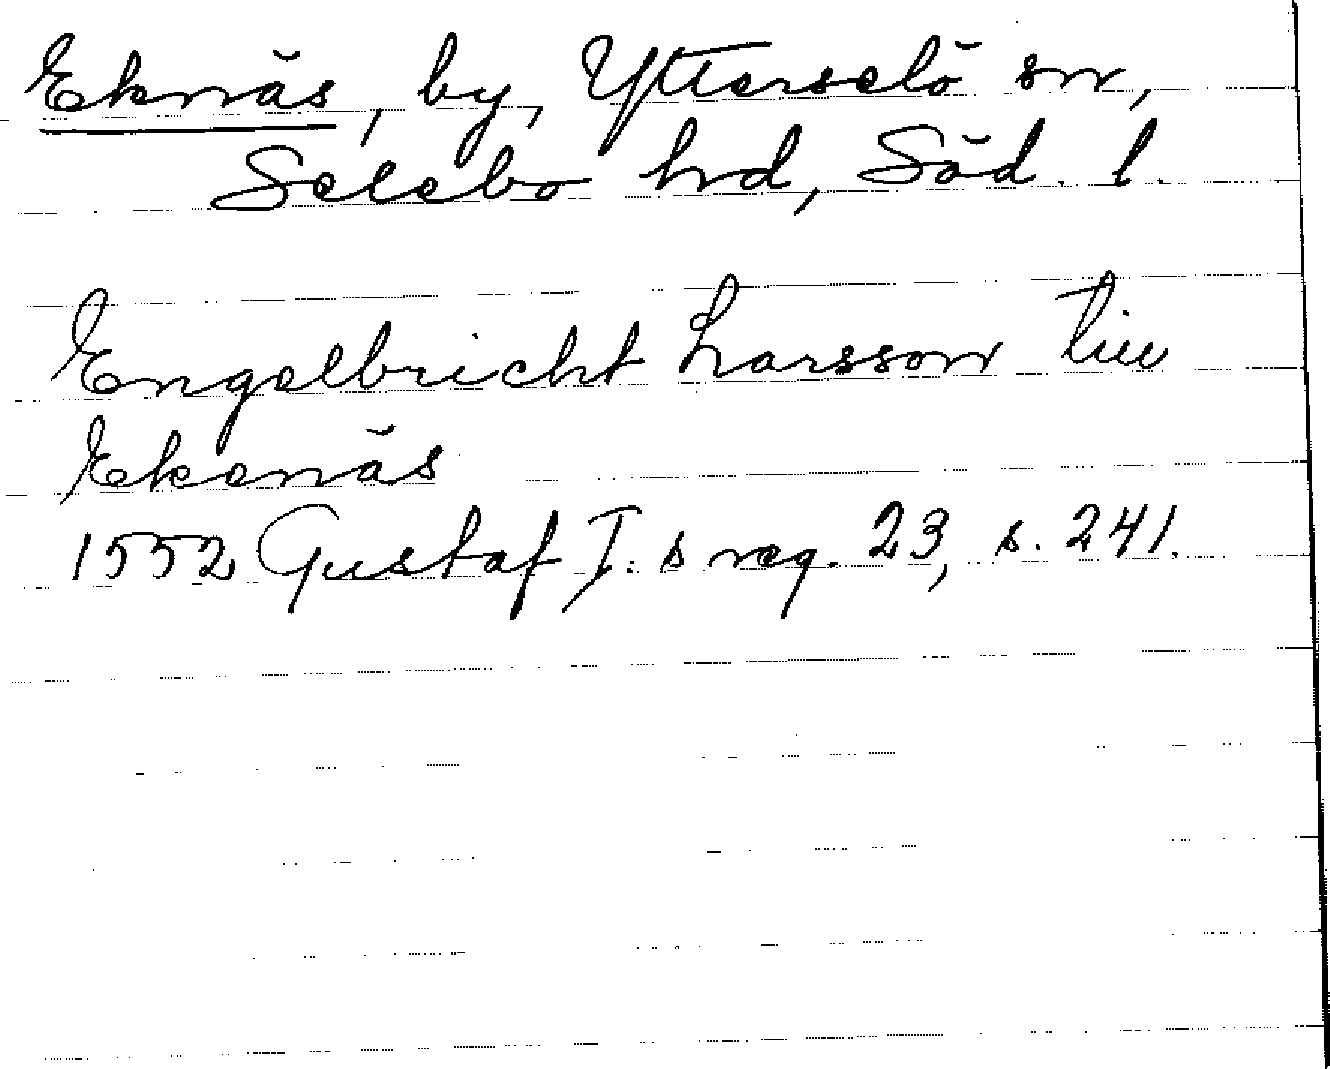 Eknäs, by, Ytterselö sn,
Selebo hrd, Söd. l.
Engelbricht Larsson till
Ekenäs
1552 Gustaf I:s reg. 23, s. 241.